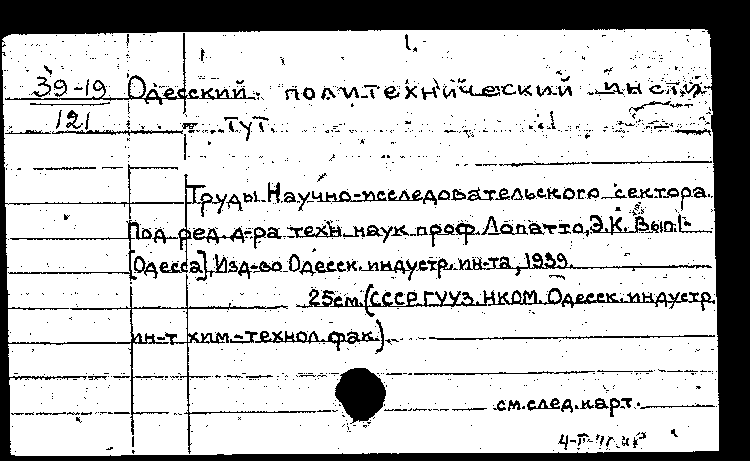 39-19 Одесский политехнический инсти-
121 тут.
Труды Научно-исследовательского сектора.
Под ред. д-ра техн. наук проф. Лопатто, Э.К. Вып.1-
[Одесса], Изд-во Одесск. индустр. ин-та, 1939.
25см. (СССР. ГУУЗ. НКОМ. Одесск. индустр.
ин-т хим.-технол. фак.)
см. след. карт.